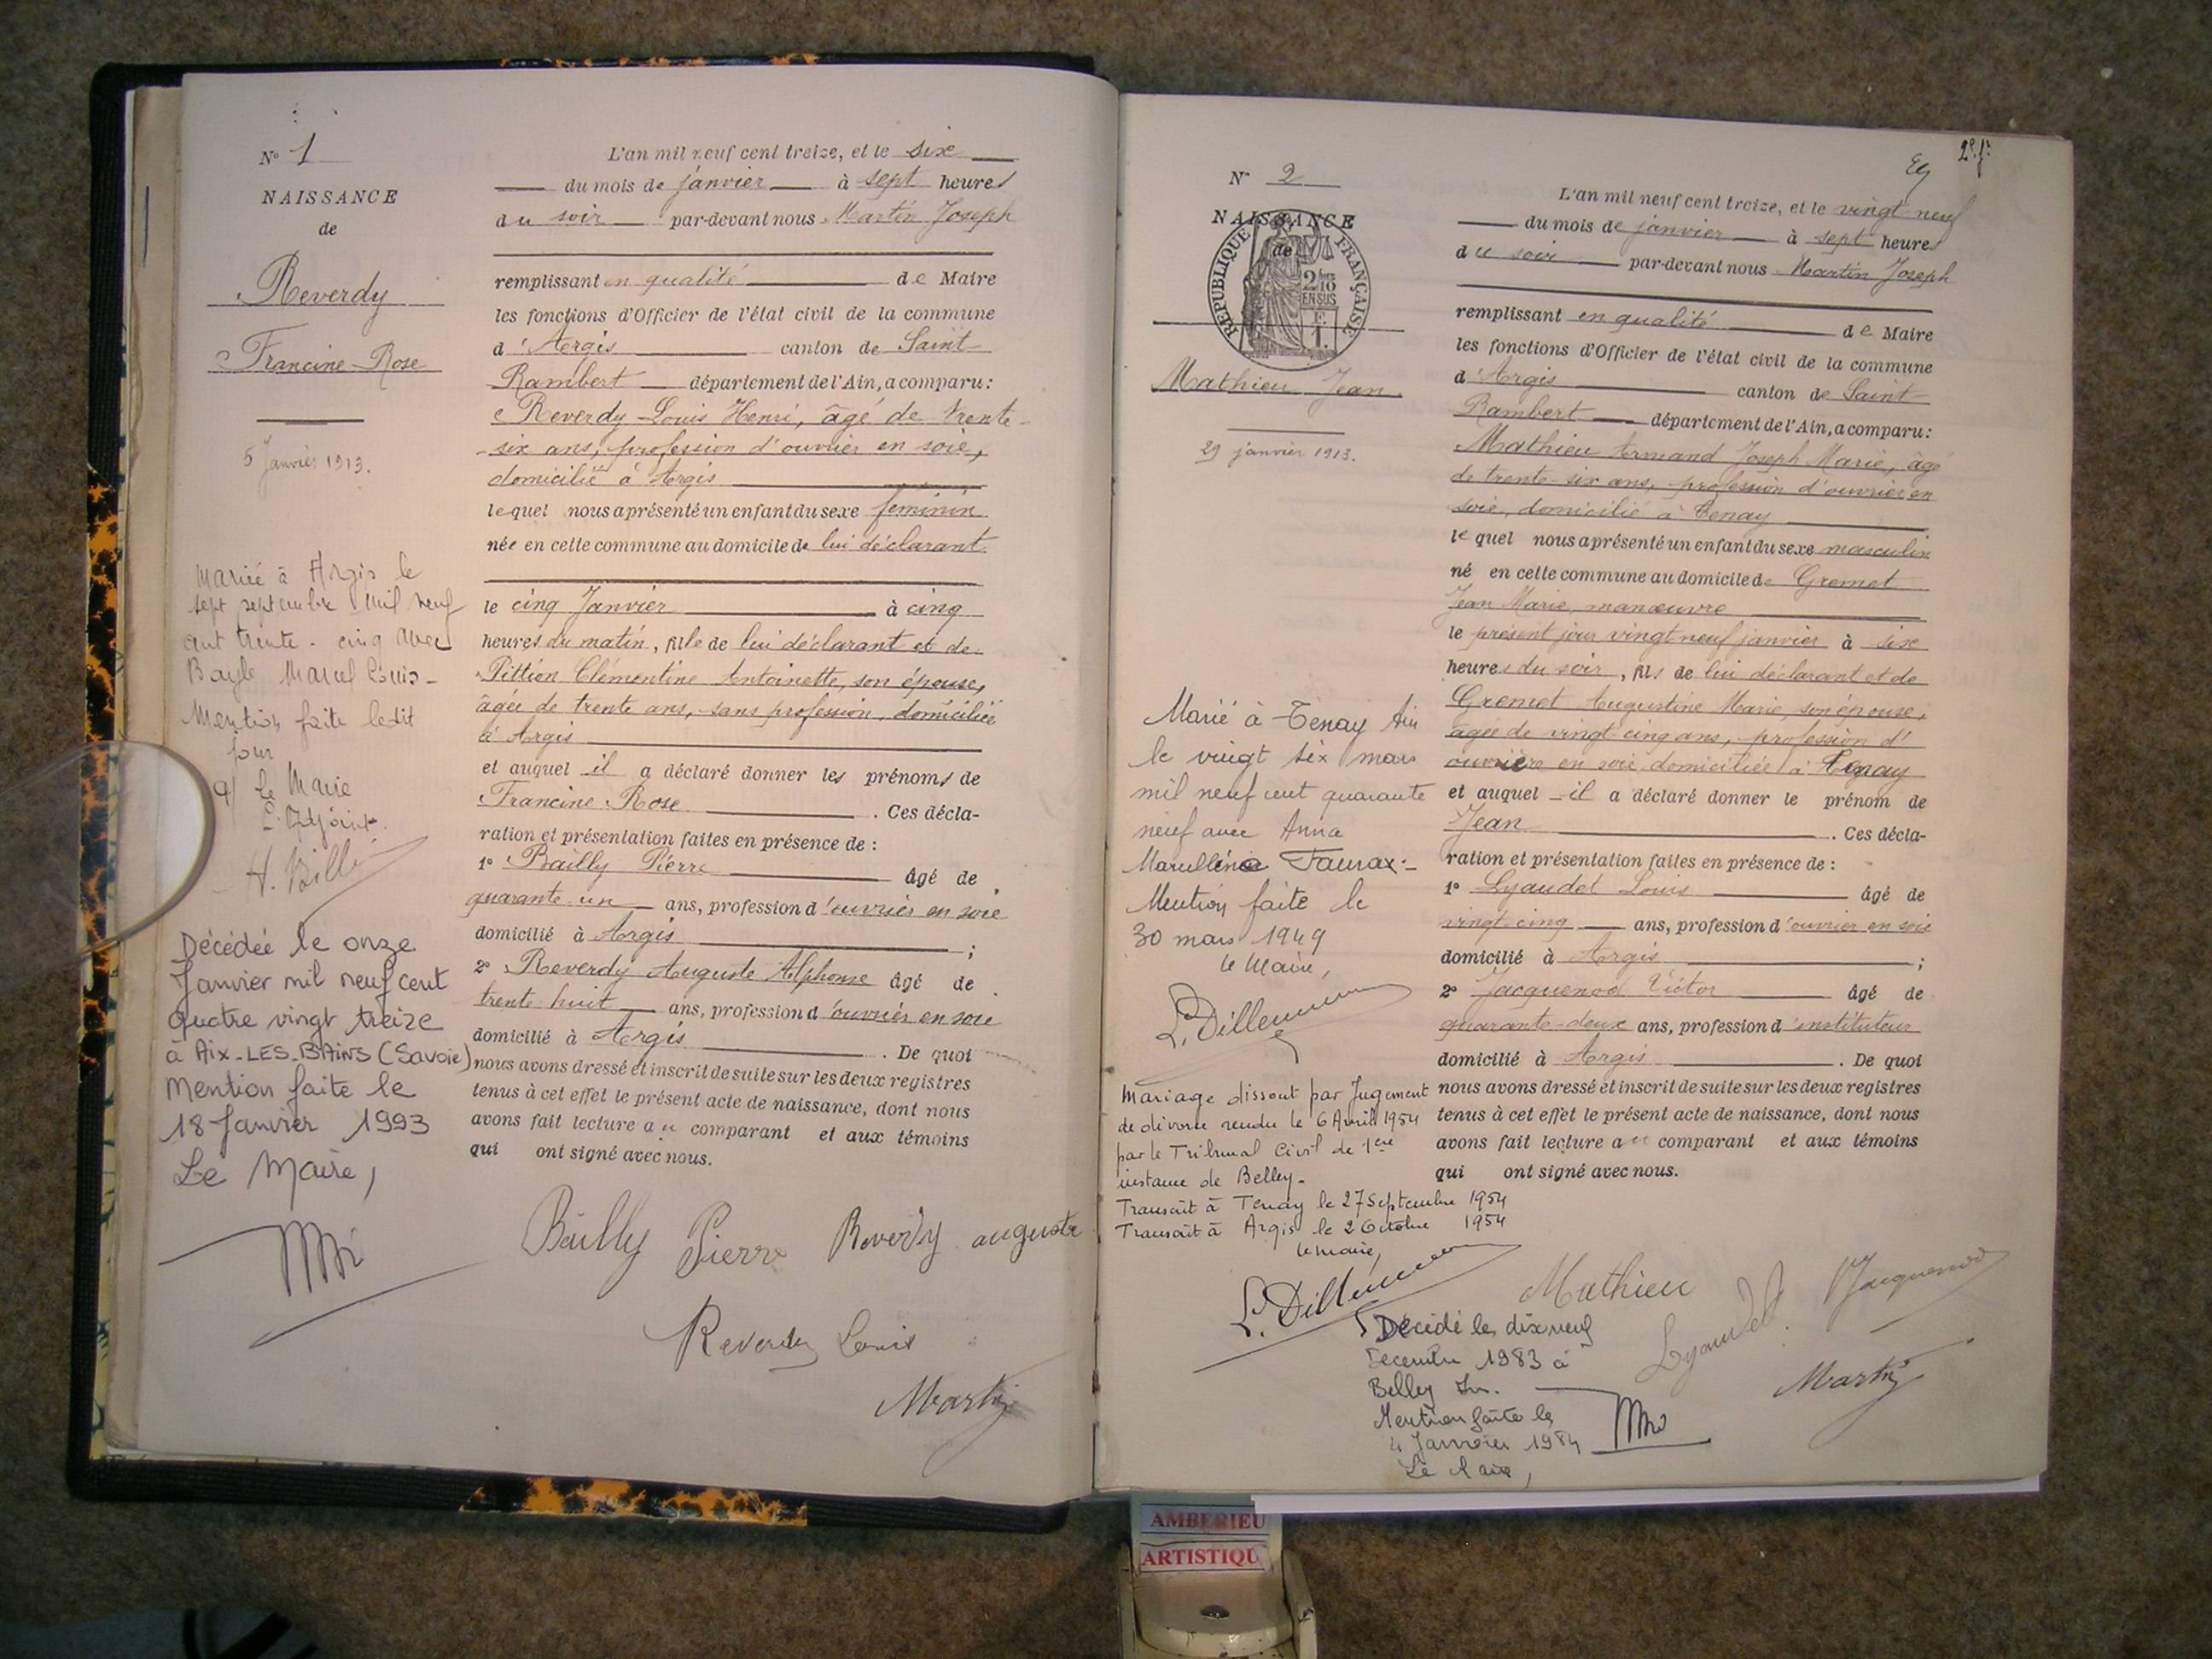 N° 1
NAISSANCE
de
Reverdy
Francine Rose
5 Janvier 1913.
Mariée à Argis le
sept septembre mil neuf
cent trente-cinq avec
Bayle Marcel Louis-
Mention faite ledit
jour
P/ Le Maire
L'Adjoint
H. Billi
Décédée le onze
Janvier mil neuf cent
quatre vingt treize
à AIX-LES-BAINS (Savoie)
Mention faite le
18 Janvier 1993
Le Maire,
L'an mil neuf cent treize, et le six
du mois de janvier à sept heures
du soir par-devant nous Martin Joseph
remplissant en qualité de Maire
les fonctions d'Officier de l'état civil de la commune
d'Argis canton de Saint-
Rambert département de l'Ain, a comparu :
Reverdy Louis Henri, âgé de trente-
six ans, profession d'ouvrier en soie,
domicilié à Argis
lequel nous a présenté un enfant du sexe féminin
née en cette commune au domicile de lui déclarant
le cinq Janvier à cinq
heures du matin, fille de lui déclarant et de
Pittion Clémentine Antoinette, son épouse,
âgée de trente ans, sans profession, domiciliée
à Argis
et auquel il a déclaré donner les prénoms de
Francine Rose. Ces décla-
ration et présentation faites en présence de :
1° Bailly Pierre âgé de
quarante un ans, profession d'ouvrier en soie
domicilié à Argis ;
2° Reverdy Auguste Alphonse âgé de
trente huit ans, profession d'ouvrier en soie
domicilié à Argis. De quoi
nous avons dressé et inscrit de suite sur les deux registres
tenus à cet effet le présent acte de naissance, dont nous
avons fait lecture au comparant et aux témoins
qui ont signé avec nous.
Bailly Pierre Reverdy auguste
Reverdy Louis
Martin
2e f.
N° 2
NAISSANCE
de
REPUBLIQUE FRANÇAISE
2/10
EN SUS
F.
1.
Mathieu Jean
29 janvier 1913.
Marié à Tenay Ain
le vingt six mars
mil neuf cent quarante
neuf avec Anna
Marcelline Faurax.-
Mention faite le
30 mars 1949
le Maire,
Mariage dissout par Jugement
de divorce rendu le 6 Avril 1954
par le Tribunal Civil de 1ere
instance de Belley-
Transcrit à Tenay le 27 Septembre 1954
Transcrit à Argis le 2 Octobre 1954
le maire,
Décédé le dix neuf
Decembre 1983 à
Belley Ain.
Mention faite le
4 Janvier 1984
Le Maire,
L'an mil neuf cent treize, et le vingt-neuf
du mois de janvier à sept heures
du soir par-devant nous Martin Joseph
remplissant en qualité de Maire
les fonctions d'Officier de l'état civil de la commune
d'Argis canton de Saint-
Rambert département de l'Ain, a comparu :
Mathieu Armand Joseph Marie, âgé
de trente-six ans, profession d'ouvrier en
soie, domicilié à Tenay
lequel nous a présenté un enfant du sexe masculin
né en cette commune au domicile de Gremet
Jean Marie, manœuvre
le présent jour vingt neuf janvier à six
heures du soir, fils de lui déclarant et de
Gremet Augustine Marie, son épouse,
âgée de vingt-cinq ans, profession d'
ouvrière en soie domiciliée à Tenay
et auquel il a déclaré donner le prénom de
Jean. Ces décla-
ration et présentation faites en présence de :
1° Lyaudet Louis âgé de
vingt cinq ans, profession d'ouvrier en soie
domicilié à Argis ;
2° Jacquenod Victor âgé de
quarante-deux ans, profession d'instituteur
domicilié à Argis. De quoi
nous avons dressé et inscrit de suite sur les deux registres
tenus à cet effet le présent acte de naissance, dont nous
avons fait lecture au comparant et aux témoins
qui ont signé avec nous.
Mathieu Jacquenod
Lyaudet
Martin
AMBERIEU
ARTISTIQU